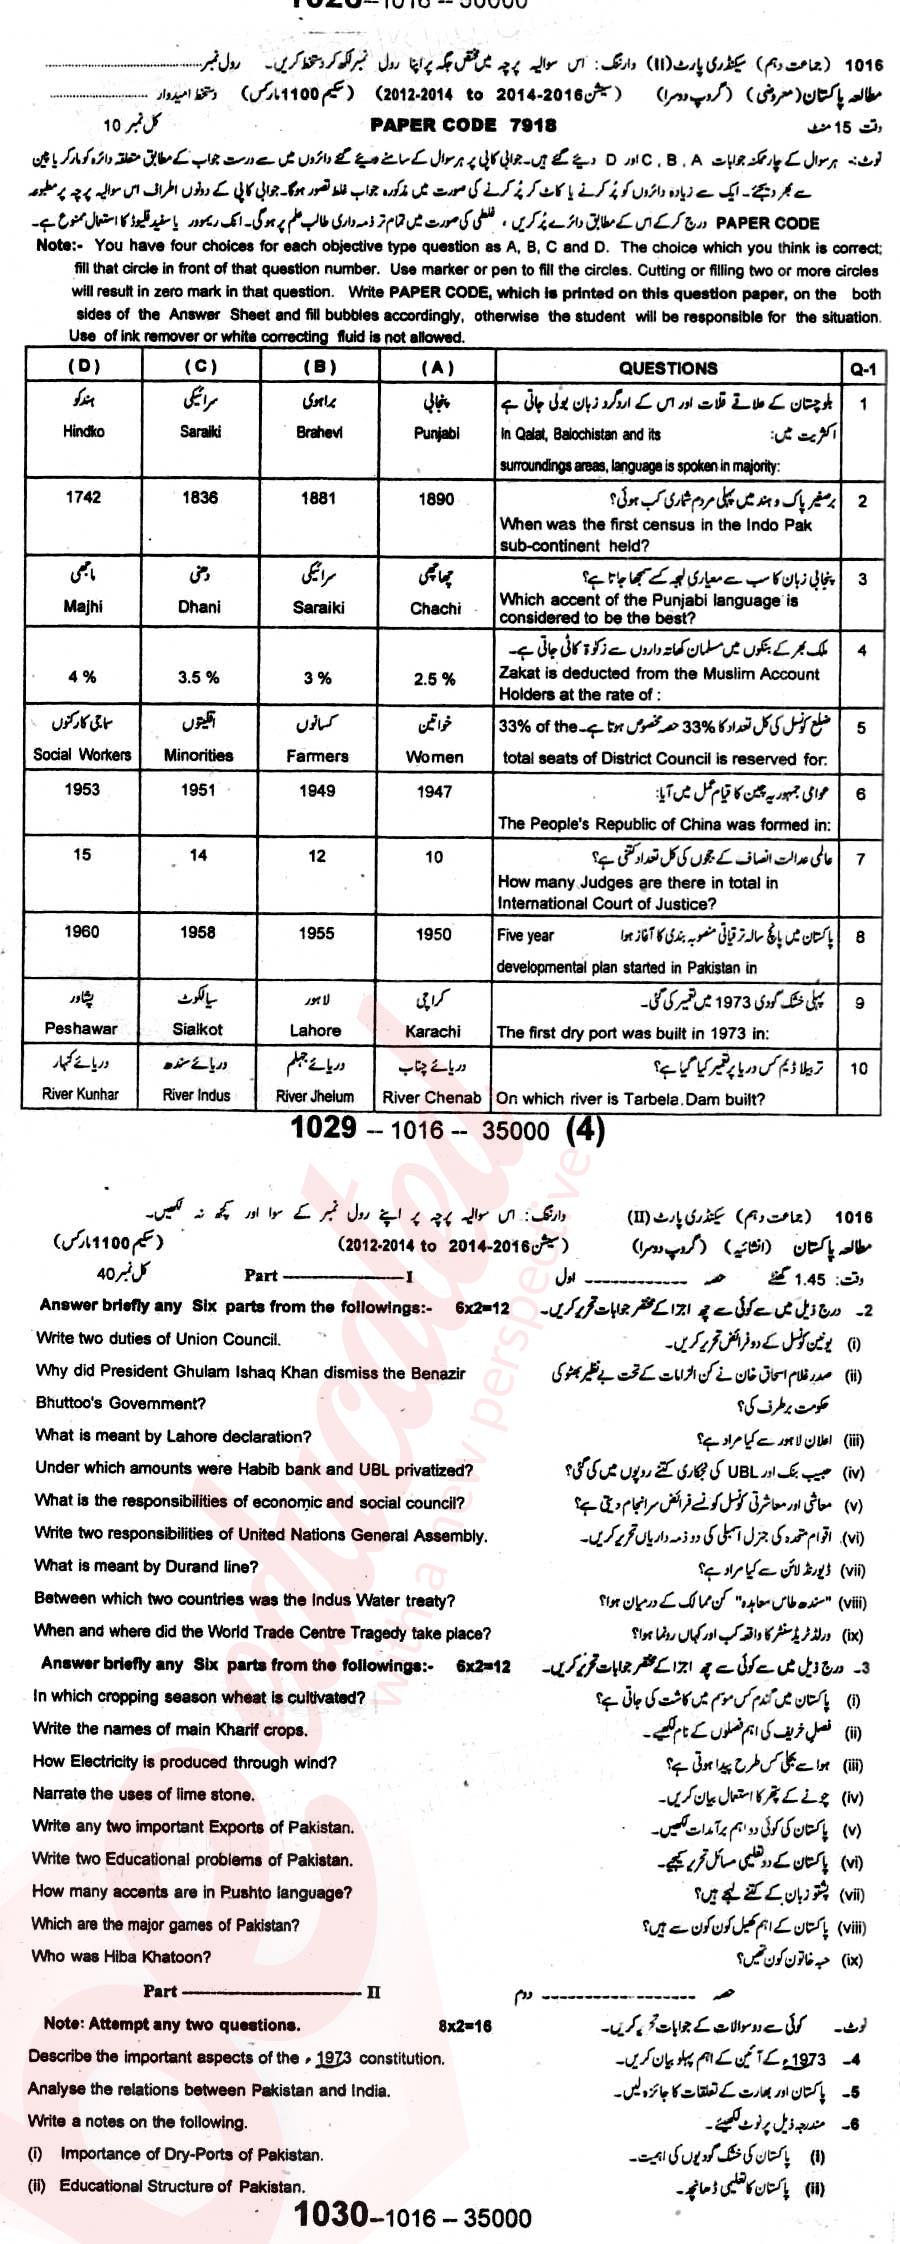 1016 (جماعت دہم) سیکنڈری پارٹ (II) وارننگ: اس سوالیہ پرچہ میں مختص جگہ پر اپنا رول نمبر لکھ کر دستخط کریں۔ رول نمبر
مطالعہ پاکستان (معروضی) (گروپ دوسرا) (سیشن 2014-2016 to 2012-2014) (سکیم 1100 مارکس) دستخط امیدوار
وقت 15 منٹ PAPER CODE 7918 کل نمبر 10
نوٹ:- ہر سوال کے چار ممکنہ جوابات C, B, A اور D دیئے گئے ہیں۔ جوابی کاپی پر ہر سوال کے سامنے دیئے گئے دائروں میں سے درست جواب کے مطابق متعلقہ دائرہ کو مارکر یا پین
سے بھر دیجئے۔ ایک سے زیادہ دائروں کو پُر کرنے یا کاٹ کر پُر کرنے کی صورت میں مذکورہ جواب غلط تصور ہوگا۔ جوابی کاپی کے دونوں اطراف اس سوالیہ پرچہ پر مطبوعہ
PAPER CODE درج کر کے اس کے مطابق دائرے پُر کریں، غلطی کی صورت میں تمام تر ذمہ داری طالب علم پر ہوگی۔ انک ریموور یا سفید فلیوڈ کا استعمال ممنوع ہے۔
Note:- You have four choices for each objective type question as A, B, C and D. The choice which you think is correct;
fill that circle in front of that question number. Use marker or pen to fill the circles. Cutting or filling two or more circles
will result in zero mark in that question. Write PAPER CODE, which is printed on this question paper, on the both
sides of the Answer Sheet and fill bubbles accordingly, otherwise the student will be responsible for the situation.
Use of ink remover or white correcting fluid is not allowed.
(D) (C) (B) (A) QUESTIONS Q-1
ہندکو سرائیکی براہوی پنجابی بلوچستان کے علاقے قلات اور اس کے اردگرد زبان بولی جاتی ہے 1
Hindko Saraiki Brahevi Punjabi In Qalat, Balochistan and its اکثریت میں:
surroundings areas, language is spoken in majority:
1742 1836 1881 1890 برصغیر پاک و ہند میں پہلی مردم شماری کب ہوئی؟ 2
When was the first census in the Indo Pak
sub-continent held?
ماجھی دھنی سرائیکی چھاچھی پنجابی زبان کا سب سے معیاری لہجہ کسے سمجھا جاتا ہے؟ 3
Majhi Dhani Saraiki Chachi Which accent of the Punjabi language is
considered to be the best?
ملک بھر کے بنکوں میں مسلمان کھاتہ داروں سے زکوٰۃ کاٹی جاتی ہے۔ 4
4 % 3.5 % 3 % 2.5 % Zakat is deducted from the Muslim Account
Holders at the rate of :
سماجی کارکنوں اقلیتوں کسانوں خواتین ضلع کونسل کی کل تعداد کا 33% حصہ مخصوص ہوتا ہے۔ 33% of the 5
Social Workers Minorities Farmers Women total seats of District Council is reserved for:
1953 1951 1949 1947 عوامی جمہوریہ چین کا قیام عمل میں آیا: 6
The People's Republic of China was formed in:
15 14 12 10 عالمی عدالت انصاف کے ججوں کی کل تعداد کتنی ہے؟ 7
How many Judges are there in total in
International Court of Justice?
1960 1958 1955 1950 Five year پاکستان میں پانچ سالہ ترقیاتی منصوبہ بندی کا آغاز ہوا 8
developmental plan started in Pakistan in
پشاور سیالکوٹ لاہور کراچی پہلی خشک گودی 1973 میں تعمیر کی گئی۔ 9
Peshawar Sialkot Lahore Karachi The first dry port was built in 1973 in:
دریائے کنہار دریائے سندھ دریائے جہلم دریائے چناب تربیلا ڈیم کس دریا پر تعمیر کیا گیا ہے؟ 10
River Kunhar River Indus River Jhelum River Chenab On which river is Tarbela Dam built?
1029 – 1016 – 35000 (4)
1016 (جماعت دہم) سیکنڈری پارٹ (II) وارننگ: اس سوالیہ پرچہ پر اپنے رول نمبر کے سوا اور کچھ نہ لکھیں۔
مطالعہ پاکستان (انشائیہ) (گروپ دوسرا) (سیشن 2014-2016 to 2012-2014) (سکیم 1100 مارکس)
وقت: 1.45 گھنٹے حصہ اول Part I کل نمبر 40
Answer briefly any Six parts from the followings:- 6x2=12 2- درج ذیل میں سے کوئی سے چھ اجزا کے مختصر جوابات تحریر کریں۔
Write two duties of Union Council. (i) یونین کونسل کے دو فرائض تحریر کریں۔
Why did President Ghulam Ishaq Khan dismiss the Benazir (ii) صدر غلام اسحاق خان نے کن الزامات کے تحت بے نظیر بھٹو کی
Bhuttoo's Government? حکومت برطرف کی؟
What is meant by Lahore declaration? (iii) اعلان لاہور سے کیا مراد ہے؟
Under which amounts were Habib bank and UBL privatized? (iv) حبیب بنک اور UBL کی نجکاری کتنے روپوں میں کی گئی؟
What is the responsibilities of economic and social council? (v) معاشی اور معاشرتی کونسل کونسے فرائض سرانجام دیتی ہے؟
Write two responsibilities of United Nations General Assembly. (vi) اقوام متحدہ کی جنرل اسمبلی کی دو ذمہ داریاں تحریر کریں۔
What is meant by Durand line? (vii) ڈیورنڈ لائن سے کیا مراد ہے؟
Between which two countries was the Indus Water treaty? (viii) "سندھ طاس معاہدہ" کن ممالک کے درمیان ہوا؟
When and where did the World Trade Centre Tragedy take place? (ix) ورلڈ ٹریڈ سنٹر کا واقعہ کب اور کہاں رونما ہوا؟
Answer briefly any Six parts from the followings:- 6x2=12 3- درج ذیل میں سے کوئی سے چھ اجزا کے مختصر جوابات تحریر کریں۔
In which cropping season wheat is cultivated? (i) پاکستان میں گندم کس موسم میں کاشت کی جاتی ہے؟
Write the names of main Kharif crops. (ii) فصل خریف کی اہم فصلوں کے نام لکھیے۔
How Electricity is produced through wind? (iii) ہوا سے بجلی کس طرح پیدا ہوتی ہے؟
Narrate the uses of lime stone. (iv) چونے کے پتھر کا استعمال بیان کریں۔
Write any two important Exports of Pakistan. (v) پاکستان کی کوئی دو اہم برآمدات لکھیں۔
Write two Educational problems of Pakistan. (vi) پاکستان کے دو تعلیمی مسائل تحریر کیجیے۔
How many accents are in Pushto language? (vii) پشتو زبان کے کتنے لہجے ہیں؟
Which are the major games of Pakistan? (viii) پاکستان کے اہم کھیل کون کون سے ہیں؟
Who was Hiba Khatoon? (ix) حبہ خاتون کون تھیں؟
Part II حصہ دوم
Note: Attempt any two questions. 8x2=16 نوٹ۔ کوئی سے دو سوالات کے جوابات تحریر کریں۔
Describe the important aspects of the 1973 constitution. 4- 1973ء کے آئین کے اہم پہلو بیان کریں۔
Analyse the relations between Pakistan and India. 5- پاکستان اور بھارت کے تعلقات کا جائزہ لیں۔
Write a notes on the following. 6- مندرجہ ذیل پر نوٹ لکھیئے۔
(i) Importance of Dry-Ports of Pakistan. (i) پاکستان کی خشک گودیوں کی اہمیت۔
(ii) Educational Structure of Pakistan. (ii) پاکستان کا تعلیمی ڈھانچہ۔
1030–1016 – 35000
with a new perspective